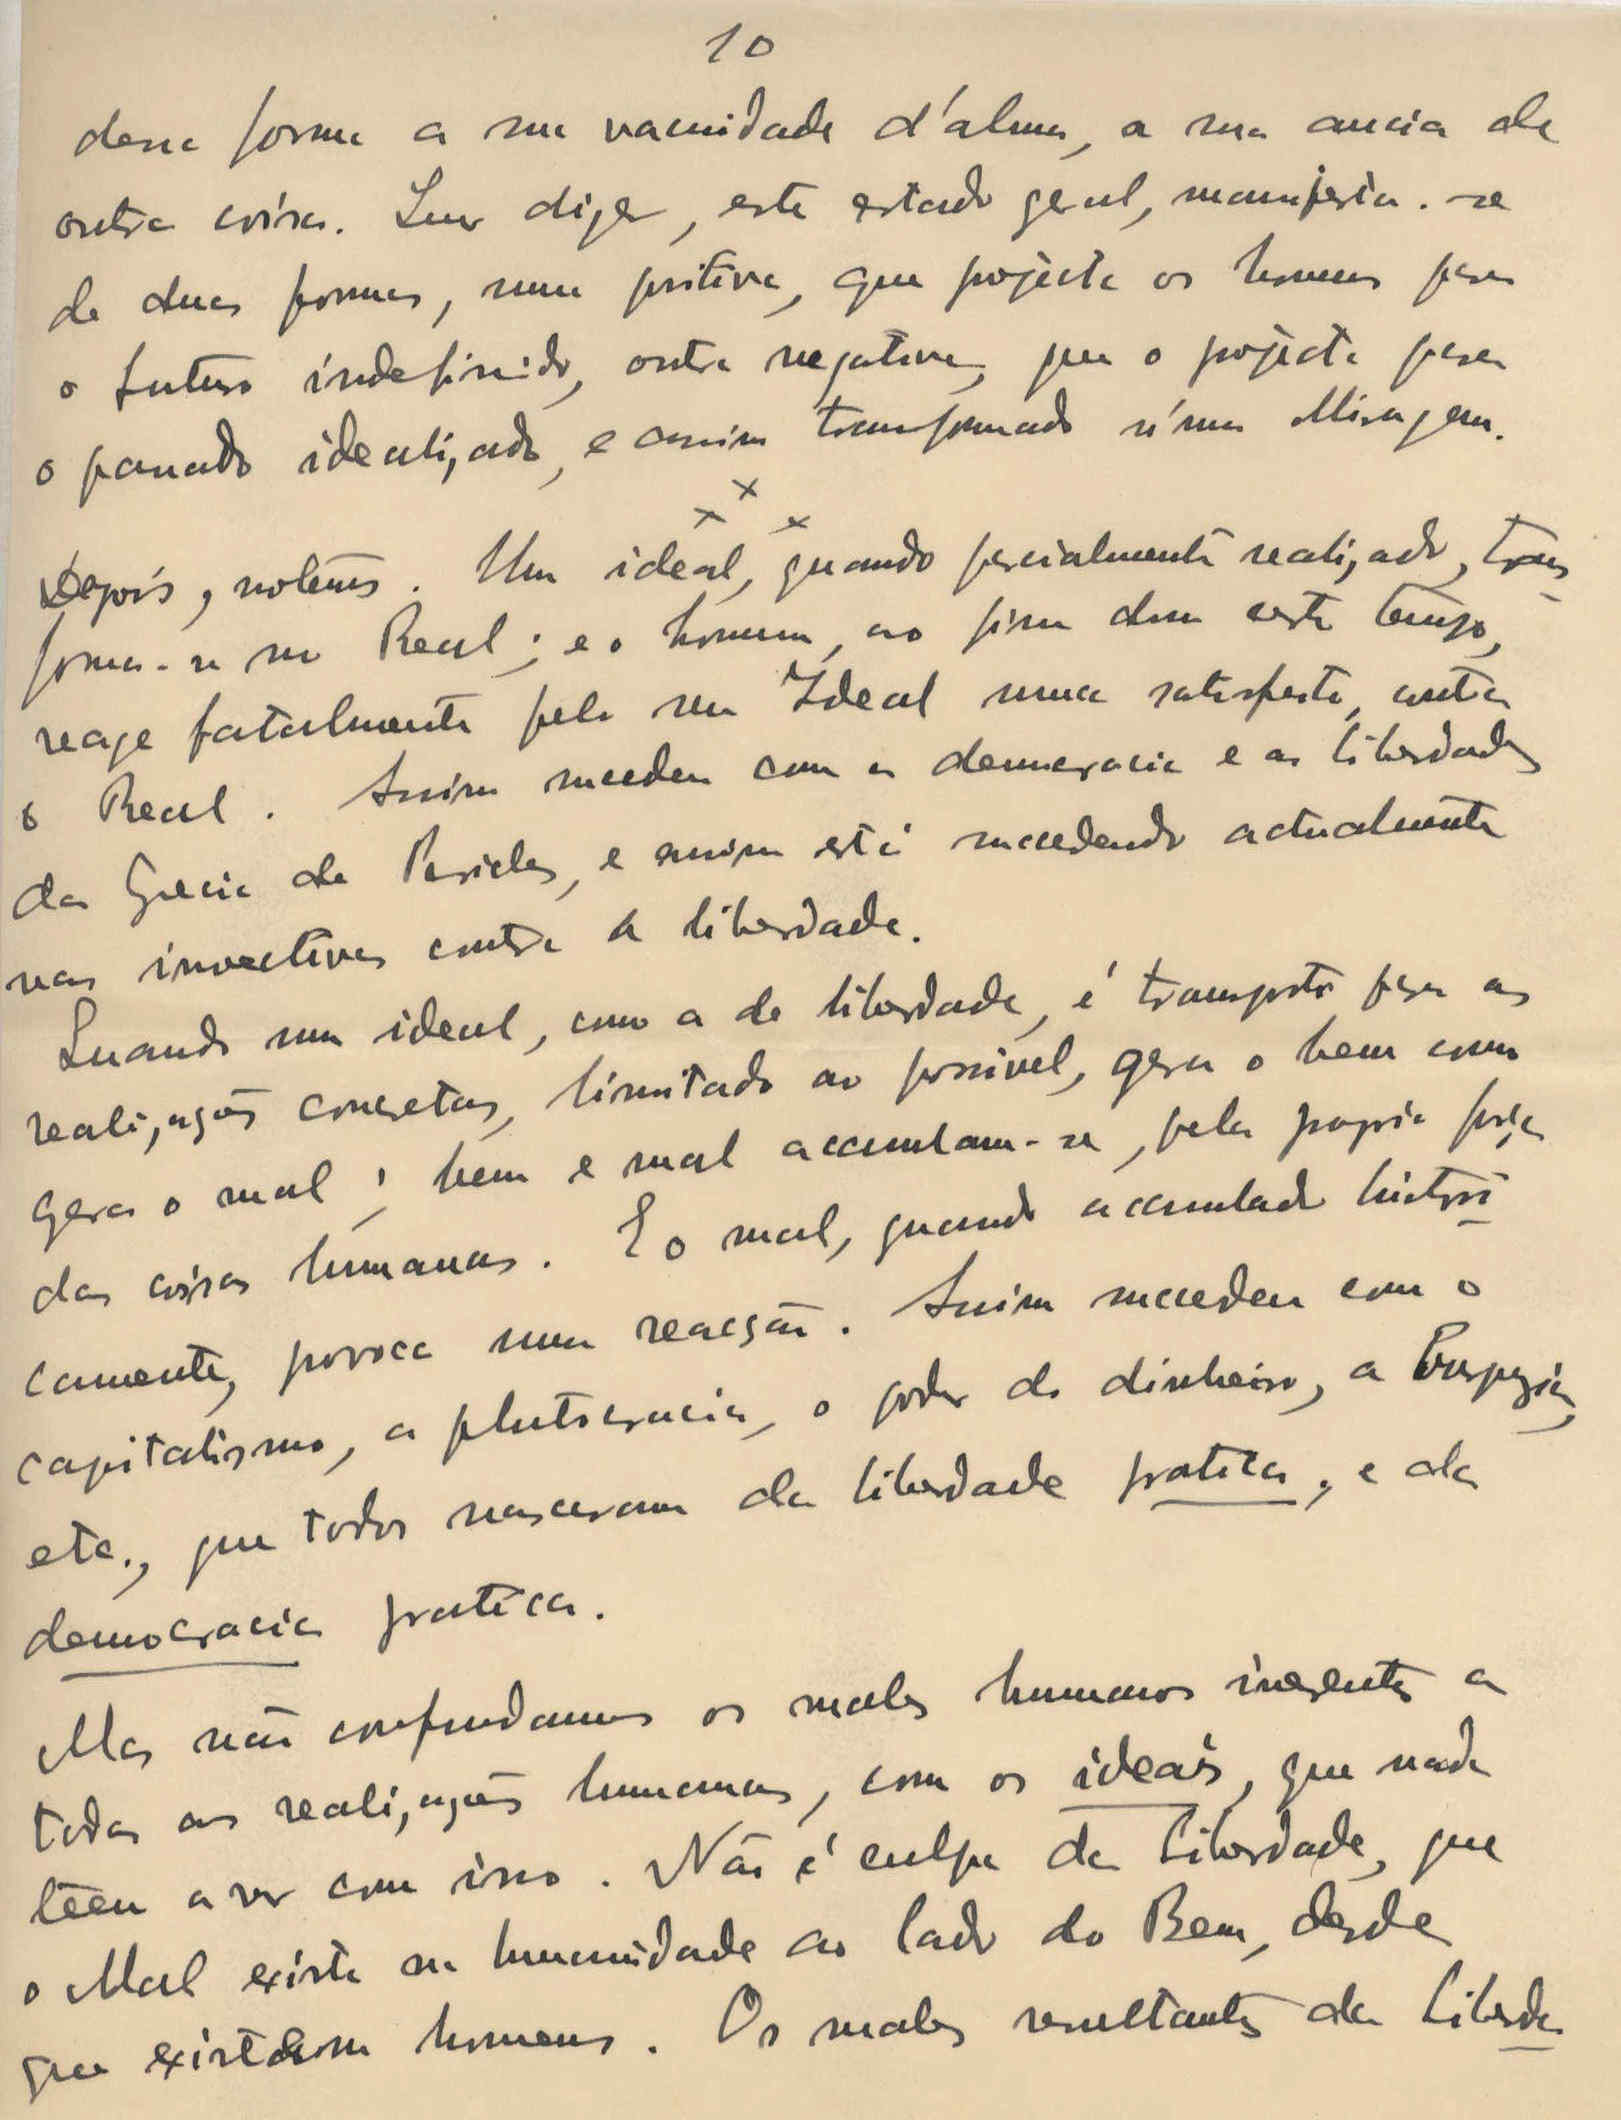 10
dessa forma a sua vacuidade d'alma, a sua ancia de
outra coisa. Quer dizer, este estado geral, manifesta-se
de duas formas, uma positiva, que projecta os homens para
o futuro indefinido, outra negativa, que o projecta para
o passado idealizado, e assim transformado n'uma Miragem.
x x x
Depois, notemos. Um ideal, quando parcialmente realizado, trans-
forma-se no Real; e o homem, ao fim dum certo tempo,
reage fatalmente pelo seu Ideal nunca satisfeito, contra
o Real. Assim succedeu com a democracia e as liberdades
da Grecia de Pericles, e assim está succedendo actualmente
nas invectivas contra a liberdade.
Quando um ideal, como a de liberdade, é transposto para as
realizações concretas, limitado ao possivel, gera o bem como
gera o mal; bem e mal accumulam-se, pela propria força
das coisas humanas. E o mal, quando accumulado histori-
camente, provoca uma reacção. Assim succedeu com o
capitalismo, a plutocracia, o poder do dinheiro, a Burguezia,
etc., que todos nasceram da liberdade pratica, e da
democracia pratica.
Mas não confundamos os males humanos inerentes a
todas as realizações humanas, com os ideais, que nada
teem a ver com isso. Não é culpa da Liberdade, que
o Mal exista na humanidade ao lado do Bem, desde
que existem homens. Os males resultantes da Liberda-